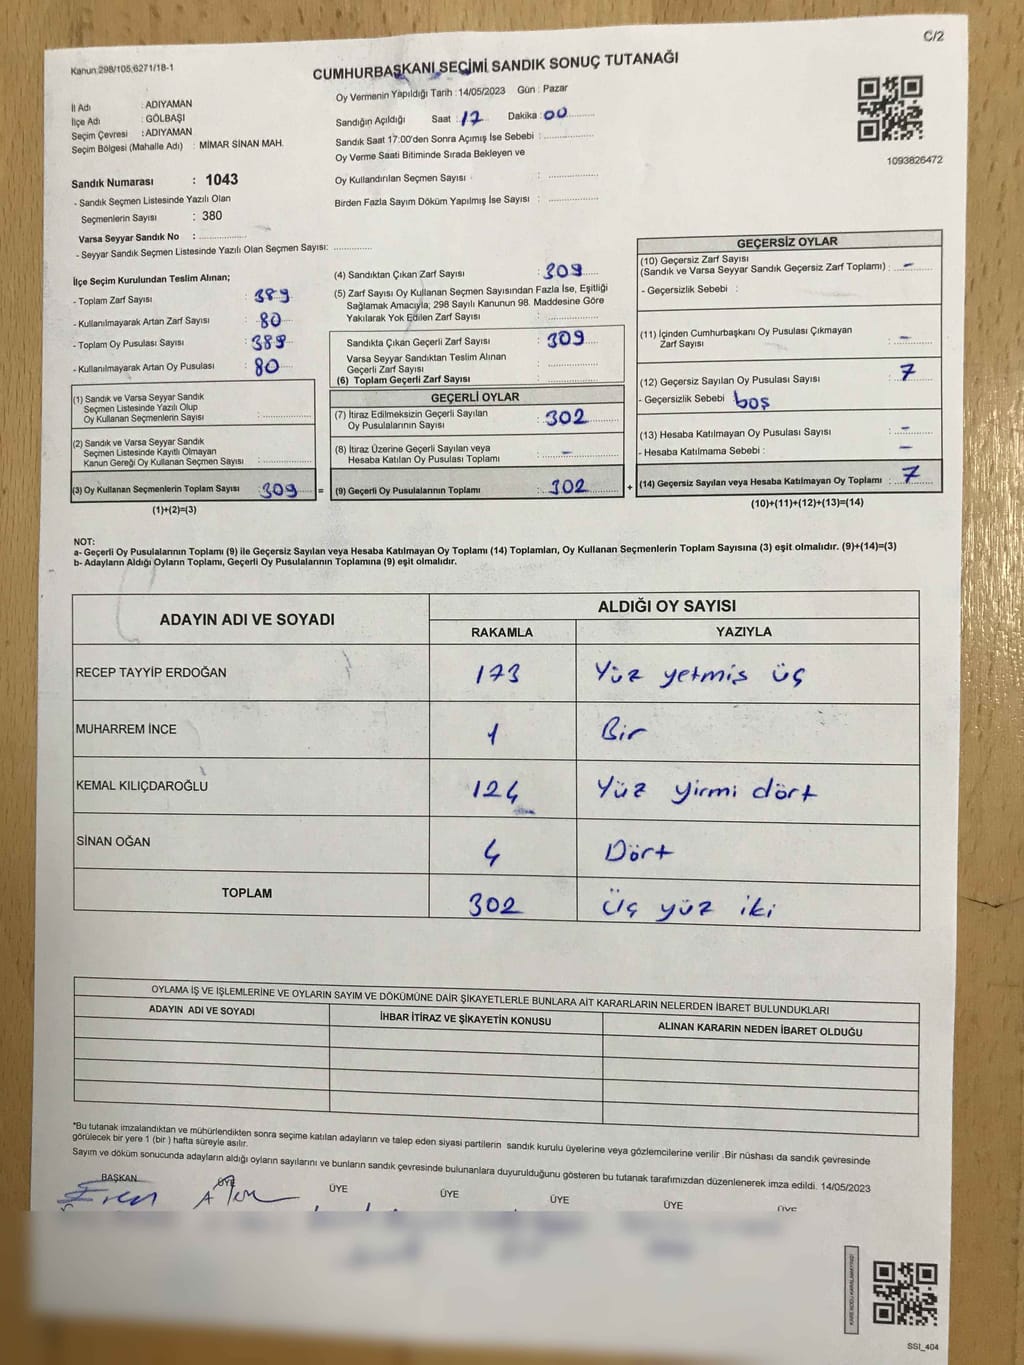 C/2
Kanun.298/105;6271/18-1
CUMHURBAŞKANI SEÇİMİ SANDIK SONUÇ TUTANAĞI
İl Adı : ADIYAMAN
İlçe Adı : GÖLBAŞI
Seçim Çevresi : ADIYAMAN
Seçim Bölgesi (Mahalle Adı) : MİMAR SİNAN MAH.
Oy Vermenin Yapıldığı Tarih :14/05/2023 Gün : Pazar
Sandığın Açıldığı Saat : 17 Dakika : 00
Sandık Saat 17:00'den Sonra Açımış İse Sebebi :
Oy Verme Saati Bitiminde Sırada Bekleyen ve
Oy Kullandırılan Seçmen Sayısı :
Birden Fazla Sayım Döküm Yapılmış İse Sayısı :
1093826472
Sandık Numarası : 1043
- Sandık Seçmen Listesinde Yazılı Olan
Seçmenlerin Sayısı : 380
Varsa Seyyar Sandık No :
- Seyyar Sandık Seçmen Listesinde Yazılı Olan Seçmen Sayısı:
İlçe Seçim Kurulundan Teslim Alınan;
- Toplam Zarf Sayısı : 389
- Kullanılmayarak Artan Zarf Sayısı : 80
- Toplam Oy Pusulası Sayısı : 389
- Kullanılmayarak Artan Oy Pusulası : 80
(1) Sandık ve Varsa Seyyar Sandık
Seçmen Listesinde Yazılı Olup
Oy Kullanan Seçmenlerin Sayısı :
(2) Sandık ve Varsa Seyyar Sandık
Seçmen Listesinde Kayıtlı Olmayan
Kanun Gereği Oy Kullanan Seçmen Sayısı :
(3) Oy Kullanan Seçmenlerin Toplam Sayısı : 309 =
(1)+(2)=(3)
(4) Sandıktan Çıkan Zarf Sayısı : 309
(5) Zarf Sayısı Oy Kullanan Seçmen Sayısından Fazla İse, Eşitliği
Sağlamak Amacıyla; 298 Sayılı Kanunun 98. Maddesine Göre
Yakılarak Yok Edilen Zarf Sayısı :
Sandıkta Çıkan Geçerli Zarf Sayısı : 309
Varsa Seyyar Sandıktan Teslim Alınan
Geçerli Zarf Sayısı :
(6) Toplam Geçerli Zarf Sayısı :
GEÇERLİ OYLAR
(7) İtiraz Edilmeksizin Geçerli Sayılan
Oy Pusulalarının Sayısı : 302
(8) İtiraz Üzerine Geçerli Sayılan veya
Hesaba Katılan Oy Pusulası Toplamı : -
(9) Geçerli Oy Pusulalarının Toplamı : 302 +
GEÇERSİZ OYLAR
(10) Geçersiz Zarf Sayısı
(Sandık ve Varsa Seyyar Sandık Geçersiz Zarf Toplamı) : -
- Geçersizlik Sebebi :
(11) İçinden Cumhurbaşkanı Oy Pusulası Çıkmayan
Zarf Sayısı : -
(12) Geçersiz Sayılan Oy Pusulası Sayısı : 7
- Geçersizlik Sebebi : boş
(13) Hesaba Katılmayan Oy Pusulası Sayısı : -
- Hesaba Katılmama Sebebi : -
(14) Geçersiz Sayılan veya Hesaba Katılmayan Oy Toplamı : 7
(10)+(11)+(12)+(13)=(14)
NOT:
a- Geçerli Oy Pusulalarının Toplamı (9) ile Geçersiz Sayılan veya Hesaba Katılmayan Oy Toplamı (14) Toplamları, Oy Kullanan Seçmenlerin Toplam Sayısına (3) eşit olmalıdır. (9)+(14)=(3)
b- Adayların Aldığı Oyların Toplamı, Geçerli Oy Pusulalarının Toplamına (9) eşit olmalıdır.
ADAYIN ADI VE SOYADI
ALDIĞI OY SAYISI
RAKAMLA YAZIYLA
RECEP TAYYİP ERDOĞAN 173 Yüz yetmiş üç
MUHARREM İNCE 1 Bir
KEMAL KILIÇDAROĞLU 124 Yüz yirmi dört
SİNAN OĞAN 4 Dört
TOPLAM 302 Üç yüz iki
OYLAMA İŞ VE İŞLEMLERİNE VE OYLARIN SAYIM VE DÖKÜMÜNE DAİR ŞİKAYETLERLE BUNLARA AİT KARARLARIN NELERDEN İBARET BULUNDUKLARI
ADAYIN ADI VE SOYADI İHBAR İTİRAZ VE ŞİKAYETİN KONUSU ALINAN KARARIN NEDEN İBARET OLDUĞU
*Bu tutanak imzalandıktan ve mühürlendikten sonra seçime katılan adayların ve talep eden siyasi partilerin sandık kurulu üyelerine veya gözlemcilerine verilir .Bir nüshası da sandık çevresinde
görülecek bir yere 1 (bir ) hafta süreyle asılır.
Sayım ve döküm sonucunda adayların aldığı oyların sayılarını ve bunların sandık çevresinde bulunanlara duyurulduğunu gösteren bu tutanak tarafımızdan düzenlenerek imza edildi. 14/05/2023
BAŞKAN ÜYE ÜYE ÜYE ÜYE ÜYE ÜYE
SSI_404